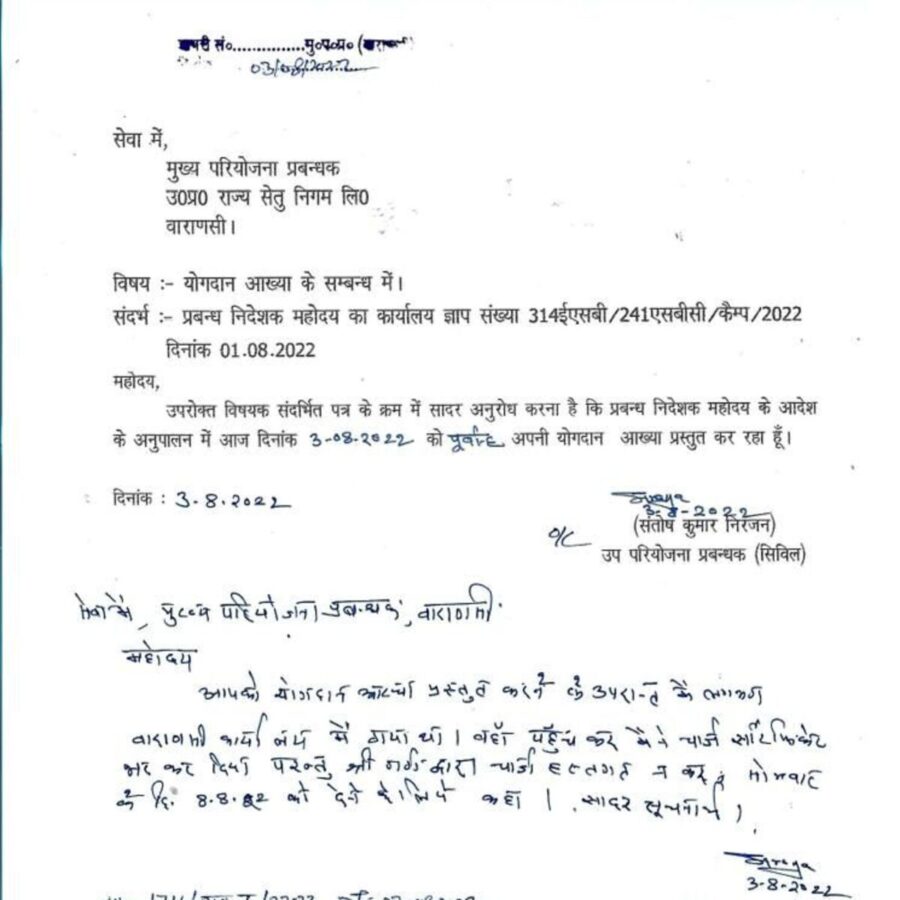 सं०...............मु०प०प्र०
03/08/2022
सेवा में,
मुख्य परियोजना प्रबन्धक
उ0प्र0 राज्य सेतु निगम लि0
वाराणसी।
विषय :- योगदान आख्या के सम्बन्ध में।
संदर्भ :- प्रबन्ध निदेशक महोदय का कार्यालय ज्ञाप संख्या 314ईएसबी/241एसबीसी/कैम्प/2022
दिनांक 01.08.2022
महोदय,
उपरोक्त विषयक संदर्भित पत्र के क्रम में सादर अनुरोध करना है कि प्रबन्ध निदेशक महोदय के आदेश
के अनुपालन में आज दिनांक 3-08-2022 को पूर्वाह्न अपनी योगदान आख्या प्रस्तुत कर रहा हूँ।
दिनांक : 3.8.2022
3-8-2022
(संतोष कुमार निरंजन)
o/c
उप परियोजना प्रबन्धक (सिविल)
सेवा में, मुख्य परियोजना प्रबन्धक, वाराणसी
महोदय
आपको योगदान आख्या प्रस्तुत करने के उपरान्त मैं
वाराणसी कार्यालय में गया था। वहाँ पहुँच कर मैंने चार्ज सर्टिफिकेट
भर कर दिया परन्तु श्री द्वारा चार्ज हस्तगत न कर सोमवार
दि. 8.8.22 को देने के लिये कहा। सादर सूचनार्थ।
3-8-2022